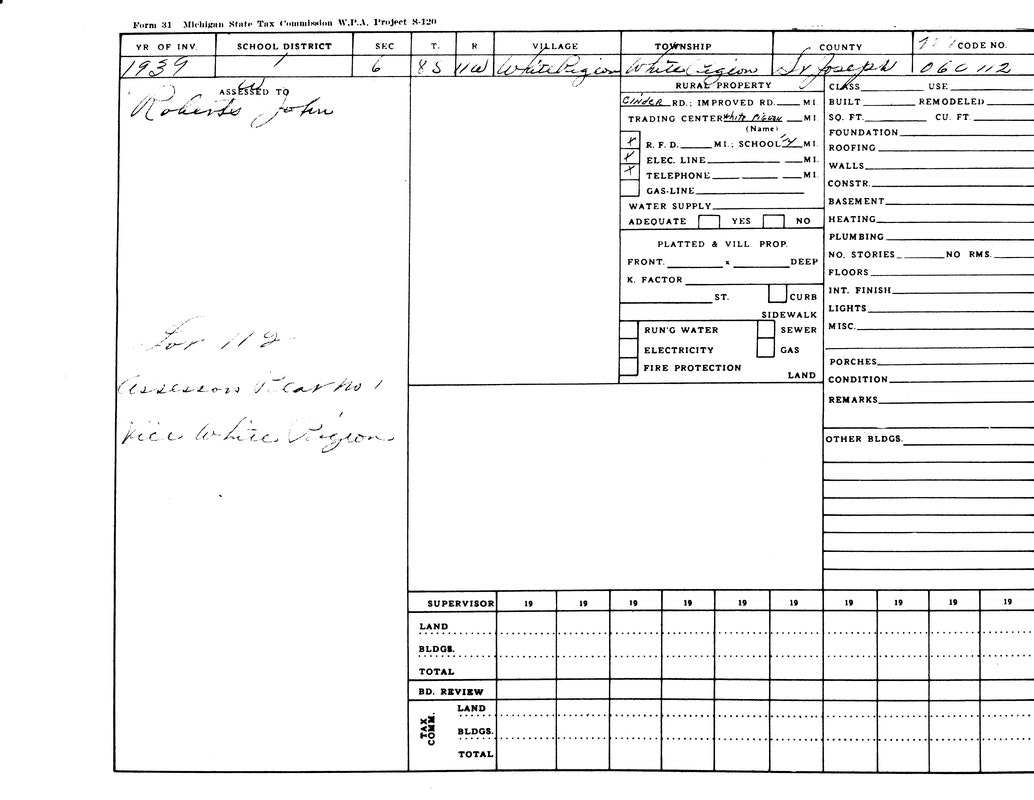 Form 31 Michigan State Tax Commission W.P.A. Project S-120
YR OF INV. SCHOOL DISTRICT SEC T. R VILLAGE TOWNSHIP COUNTY CODE NO.
1939 1 6 8S 11W White Pigeon White Pigeon St Joseph 06C 112
ASSESSED TO
Roberts John
Lot 112
Assessors Plat No 1
Vice White Pigeon
RURAL PROPERTY
Cinder RD.; IMPROVED RD. MI.
TRADING CENTER White Pigeon MI.
(Name)
X R. F. D. MI.; SCHOOL 1/4 MI.
X ELEC. LINE MI.
X TELEPHONE MI.
GAS-LINE
WATER SUPPLY
ADEQUATE YES NO
PLATTED & VILL. PROP.
FRONT. x DEEP
K. FACTOR
ST. CURB
SIDEWALK
RUN'G WATER SEWER
ELECTRICITY GAS
FIRE PROTECTION
LAND
CLASS. USE
BUILT REMODELED
SQ. FT. CU. FT.
FOUNDATION
ROOFING
WALLS
CONSTR.
BASEMENT
HEATING
PLUMBING
NO. STORIES NO RMS.
FLOORS
INT. FINISH
LIGHTS
MISC.
PORCHES
CONDITION
REMARKS
OTHER BLDGS.
SUPERVISOR 19 19 19 19 19 19 19 19 19 19
LAND
BLDGS.
TOTAL
BD. REVIEW
TAX COMM.
LAND
BLDGS.
TOTAL